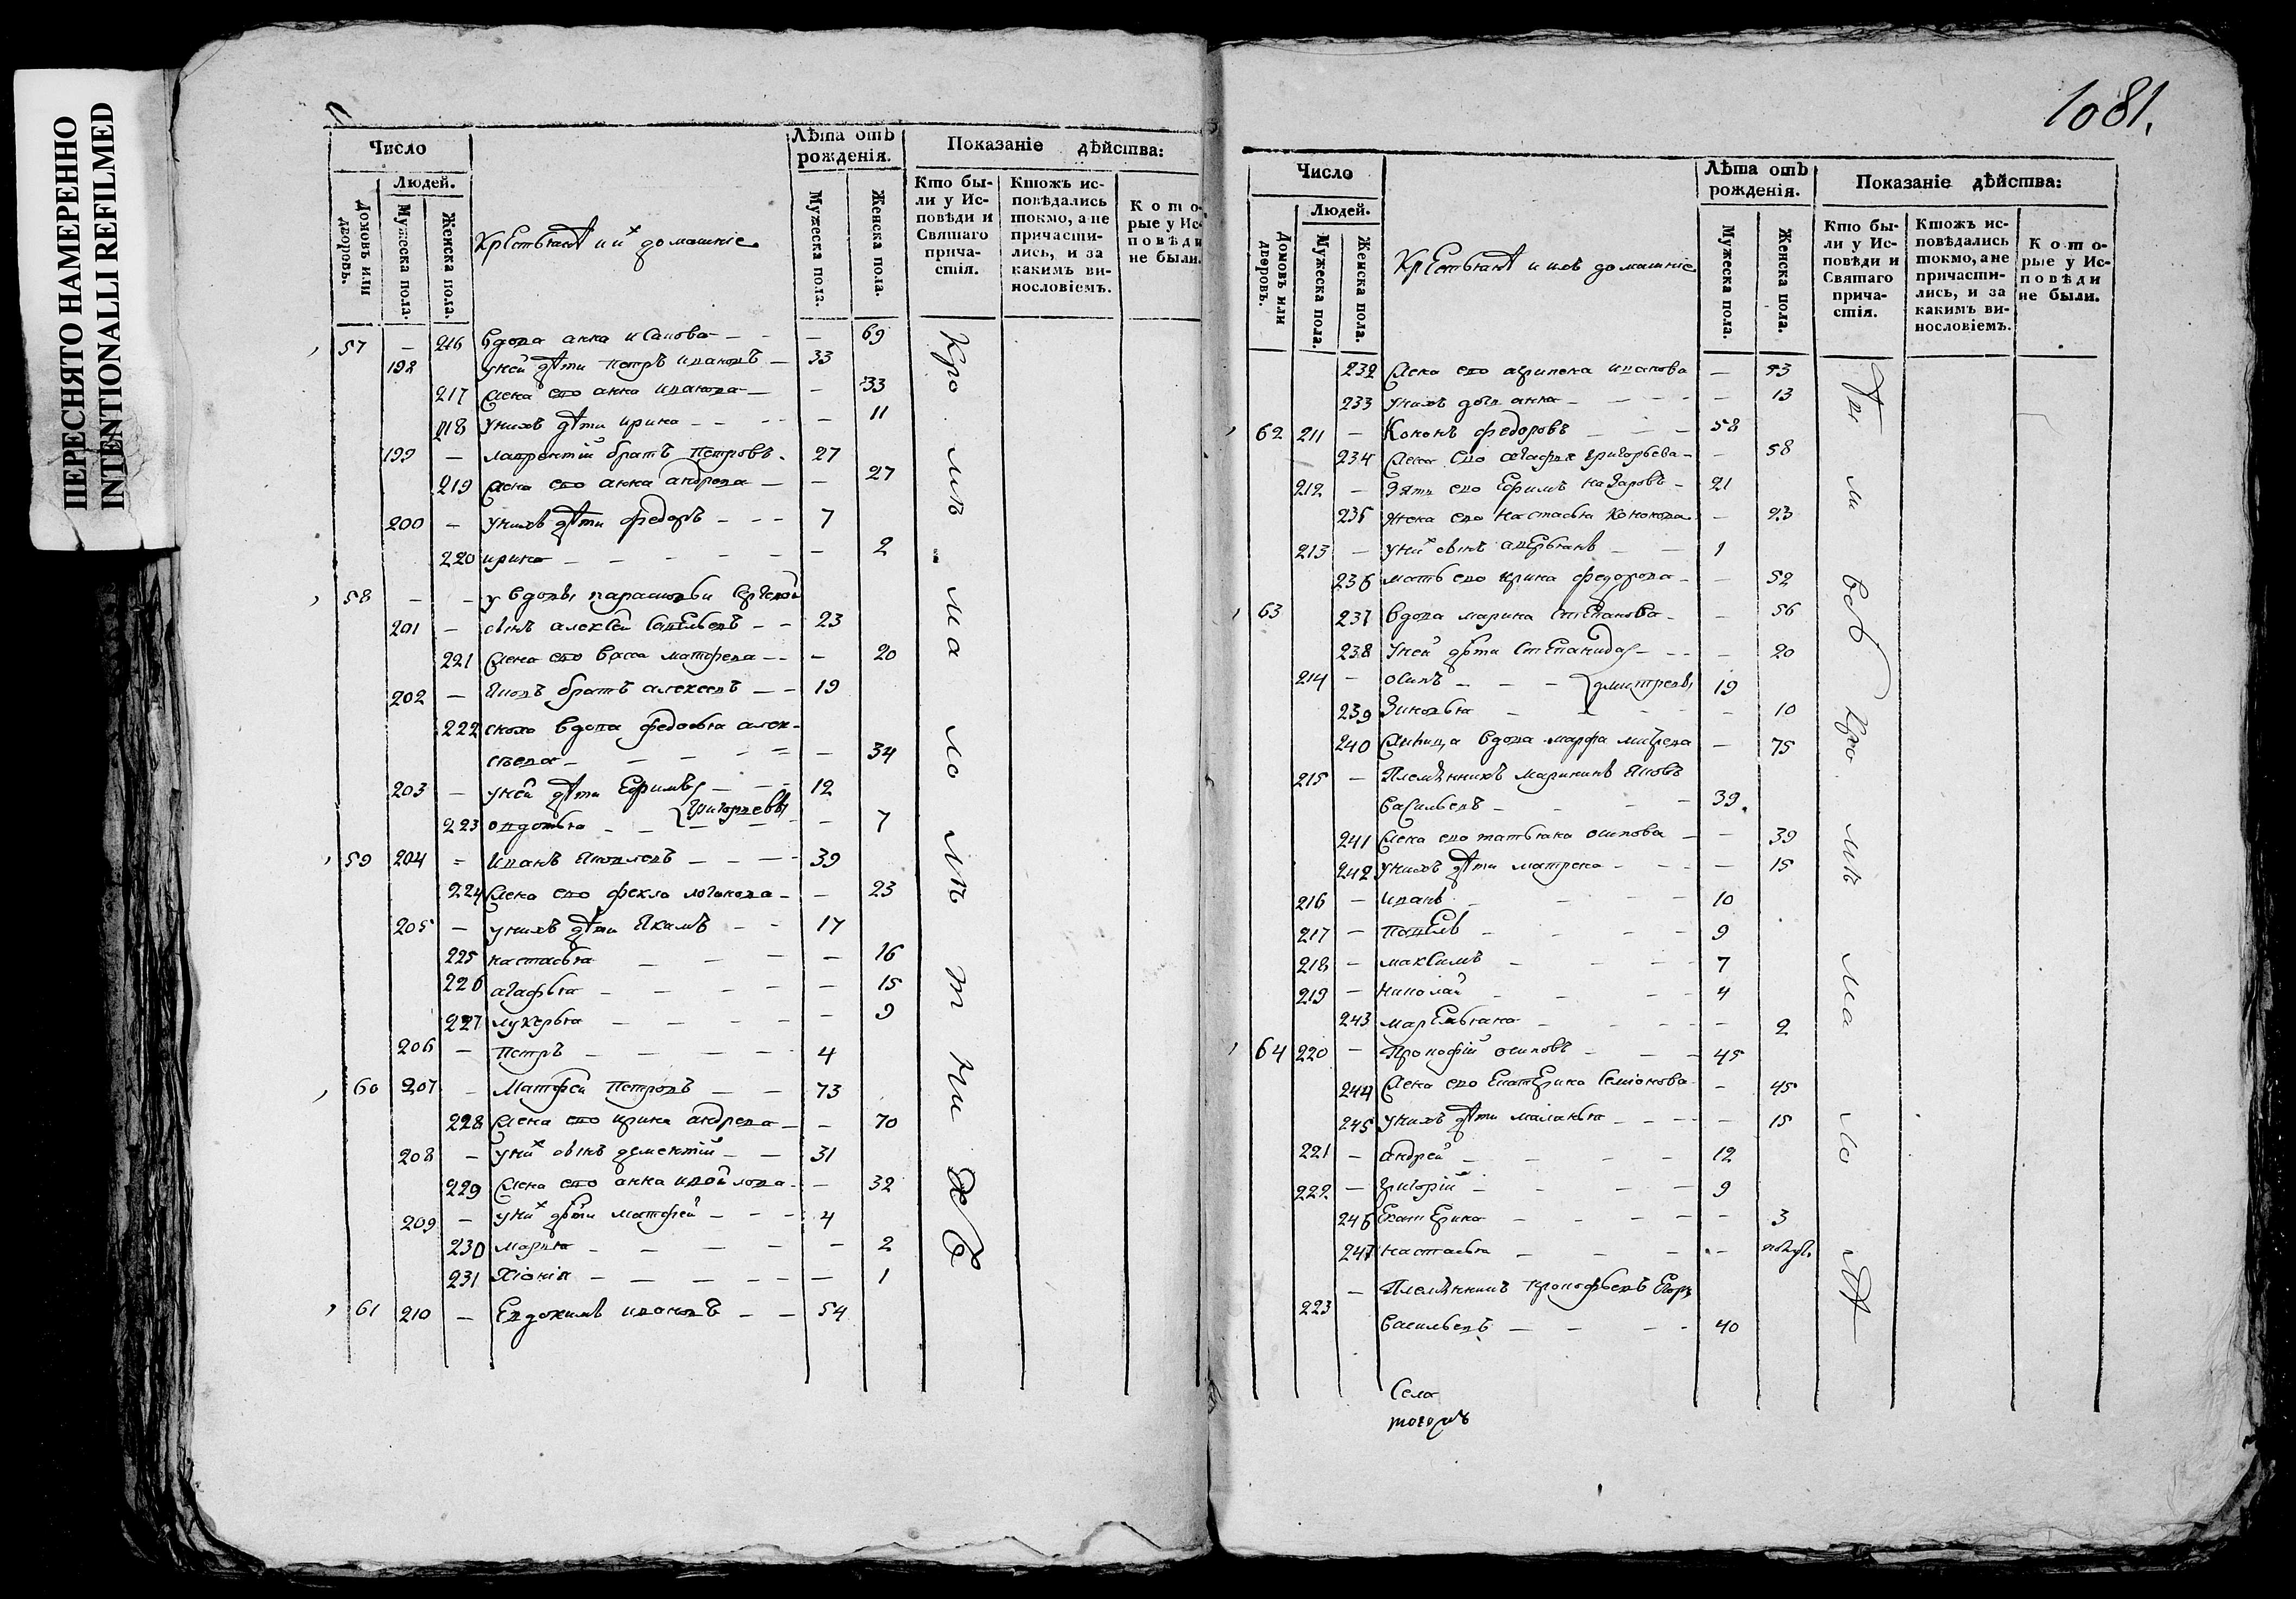 ПЕРЕСНЯТО НАМЕРЕННО
INTENTIONALLI REFILMED
Число
Людей.
Домовъ или дворовъ.
Мужеска пола.
Женска пола.
Крестьянѣ и их домашніе
Лѣта отъ рожденія.
Мужеска пола.
Женска пола.
Показаніе дѣйства:
Кто были у Исповѣди и Святаго причастія.
Ктожъ исповѣдались токмо, а не причастились, и за какимъ винословіемъ.
Которые у Исповѣди не были.
57 — 216 Вдова анна — — 69
198 уней дѣти петръ ивановъ — 33
217 жена его анна иванова — — 33
218 унихъ дѣти ирина — — — 11
199 — лаврентій братъ петровъ. 27
219 жена его анна андрева — — 27
200 — унихъ дѣти федоръ — — 7
220 ирина — — — 2
58 — — у вдовы парасковьи
201 — сынъ алексей савельевъ — — 23
221 жена его васса матфева — — 20
202 — Яковъ братъ алексеевъ — — 19
222 сноха вдова федосья алек-
сѣева — — — 34
203 — уней дѣти Ефимъ — — 12
{григорьевы
223 овдотья — — — 7
59 204 = Иванъ Яковлевъ — — 39
224 жена его фекла логинова — — 23
205 — унихъ дѣти Якимъ — — 17
225 настасья — — — 16
226 агафья — — — 15
227 лукерья — — — 9
206 — петръ — — — 4
60 207 — Матфей Петровъ — — 73
228 жена его ирина андрева — — 70
208 — уних сынъ дементій — — 31
229 жена его анна — 32
209 — уних дѣти матфей — — 4
230 марья — — — 2
231 Хіонія — — — 1
61 210 — Евдокимъ ивановъ — — 54
Кро мѣ ма ло лѣ т ни хъ
1081.
Число
Людей.
Домовъ или дворовъ.
Мужеска пола.
Женска пола.
Крестьянѣ и ихъ домашніе
Лѣта отъ рожденія.
Мужеска пола.
Женска пола.
Показаніе дѣйства:
Кто были у Исповѣди и Святаго причастія.
Ктожъ исповѣдались токмо, а не причастились, и за какимъ винословіемъ.
Которые у Исповѣди не были.
232 жена его агрипена иванова — 53
233 унихъ дочь анна — — — 13
62 211 — Кононъ федоровъ — — 58
234 жена его агафья григорьева — — 58
212 — Зять его Ефимъ назаровъ — 21
235 жена его настасья кононова — 23
213 — уних сынъ аверьянъ — — 1
236 мать его ирина федорова — — 52
63 237 вдова марина Степанова — — 56
238 уней дѣти Степанида — — 20
214 — осипъ — — {дмитревы 19
239 Зиновья — — — 10
240 вдова марфа — 75
215 — Племянникъ марининъ Яковъ
Васильевъ — — — 39.
241 жена его татьяна осипова — — 39
242 унихъ дѣти матрена — — — 15
216 — иванъ — — — 10
217 — павелъ — — — 9
218 — максимъ — — — 7
219 — николай — — — 4
243 маремьяна — — — 2
64 220 — Прокофій осиповъ — — — 45
244 жена его екатерина семіонова — 45
245 унихъ дѣти маланья — — — 15
221 — андрей — — — 12
222 — григорій — — — 9
246 екатерина — — — 3
247 настасья — — —
— Племянникъ прокофьевъ Егоръ
223 Васильевъ — — — 40
кро мѣ ма ло
Села